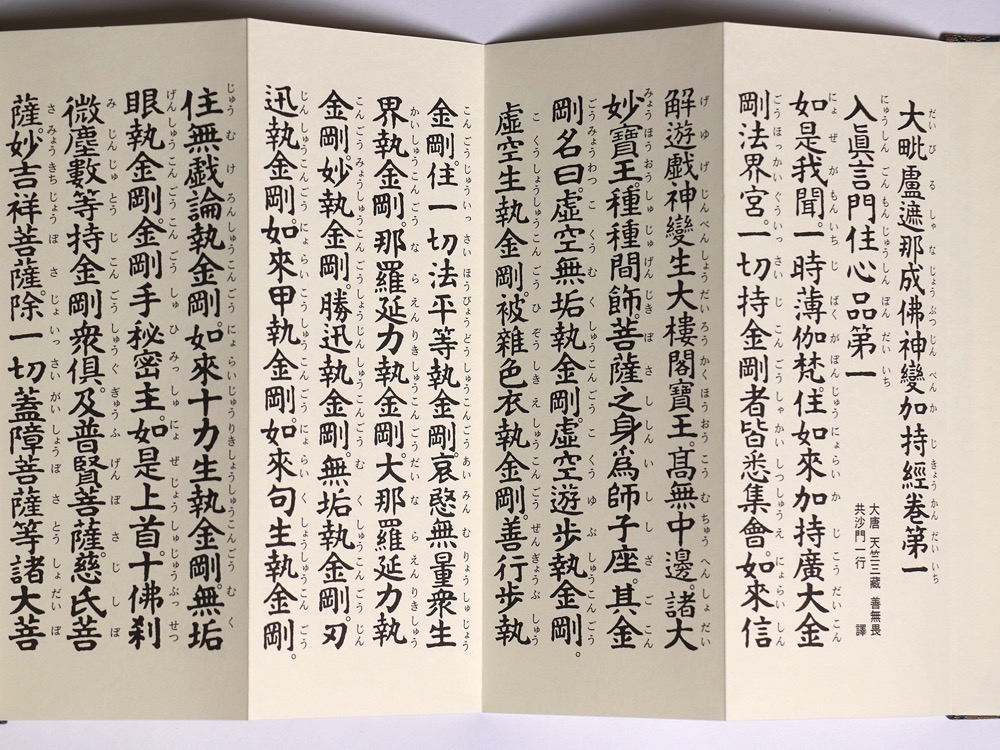 大毗盧遮那成佛神變加持經卷第一
大唐 天竺三藏 善無畏
共沙門一行 譯
入眞言門住心品第一
如是我聞。一時薄伽梵。住如來加持廣大金
剛法界宮。一切持金剛者皆悉集會。如來信
解遊戲神變生大樓閣寶王。高無中邊諸大
妙寶王。種種間飾。菩薩之身爲師子座。其金
剛名曰。虛空無垢執金剛。虛空遊步執金剛。
虛空生執金剛。被雜色衣執金剛。善行步執
金剛。住一切法平等執金剛。哀愍無量衆生
界執金剛。那羅延力執金剛。大那羅延力執
金剛。妙執金剛。勝迅執金剛。無垢執金剛。刃
迅執金剛。如來甲執金剛。如來句生執金剛。
住無戲論執金剛。如來十力生執金剛。無垢
眼執金剛。金剛手秘密主。如是上首。十佛刹
微塵數等持金剛衆俱。及普賢菩薩。慈氏菩
薩。妙吉祥菩薩。除一切蓋障菩薩等諸大菩